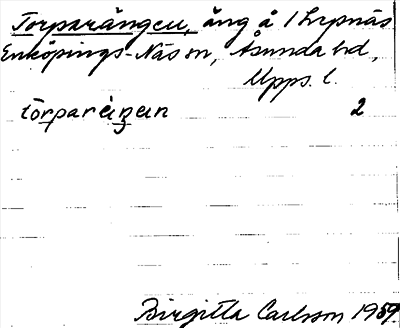 Torparängen, äng å 1 Lrpnäs
Enköpings-Näs sn, Åsunda hd,
Upps. l.
tòrparèŋen 2
Birgitta Carlsson 1959.